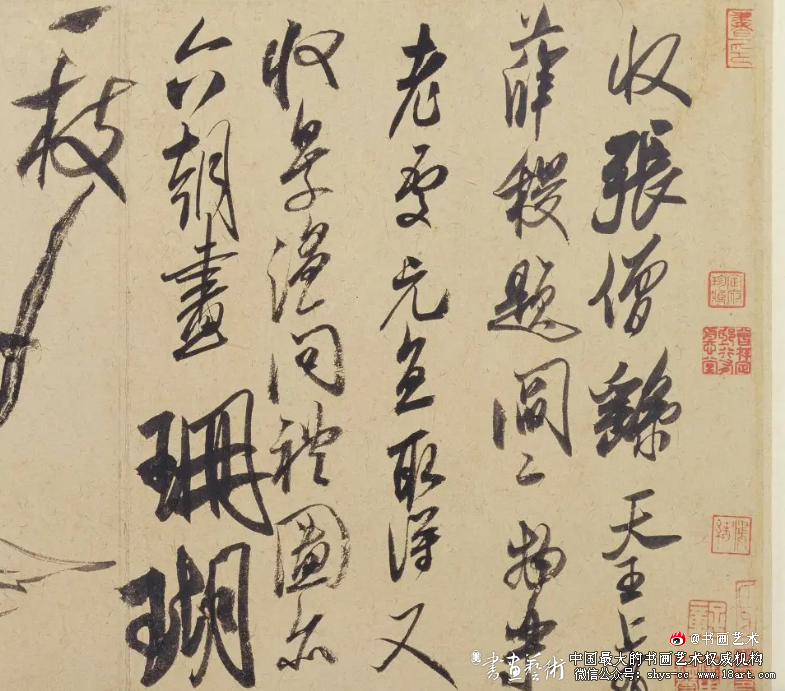 收張僧繇天王上
薛稷題閻二物樂
老處元直取得又
收景溫問禮圖亦
六朝畫珊瑚
一枝
@书画艺术
書畫藝術
中国最大的书画艺术权威机构
微信公众号：shys-cc www.18art.com